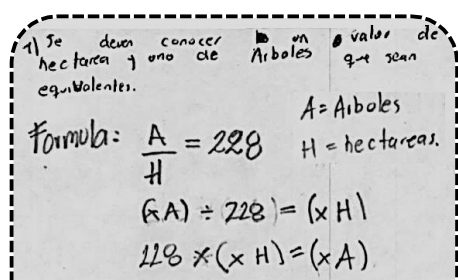 1) Se deven conocer un valor de
hectarea y uno de Arboles que sean
equivalentes.
A = Arboles
Formula: A/H = 228
H = hectareas.
(xA) ÷ 228 = (x H)
228 * (x H) = (x A)